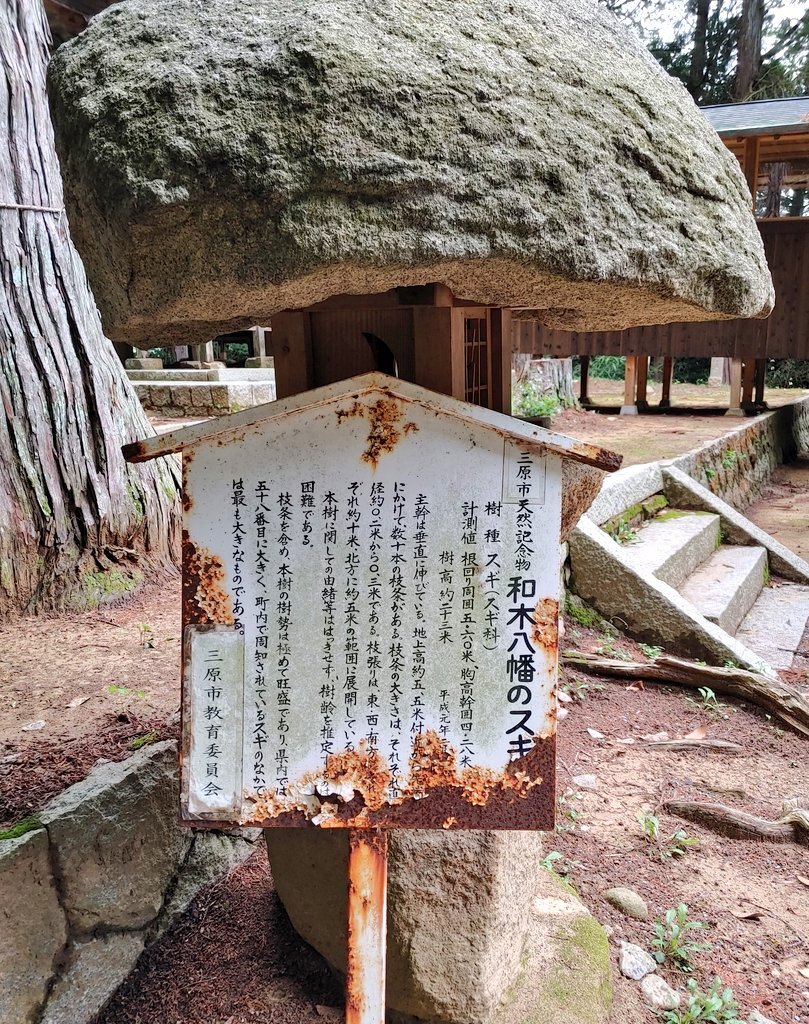 三原市天然記念物 和木八幡のスギ
樹 種 スギ(スギ科)
計測値 根回り周囲五・六〇米、胸高幹囲四・二八米
樹高約二十三米 平成元年
主幹は垂直に伸びている。地上高約五、五米付
にかけて数十本の枝条がある。枝条の大きさは、それぞれ直
径約〇・二米から〇・三米である。枝張りは、東、西、南
ぞれ約十米、北方に約五米の範囲に展開している
本樹に関しての由緒等ははっきせず、樹齢を推定す
困難である。
枝条を含め、本樹の樹勢は極めて旺盛であり県内では
五十八番目に大きく、町内で周知されているスギのなかで
は最も大きなものである。
三原市教育委員会